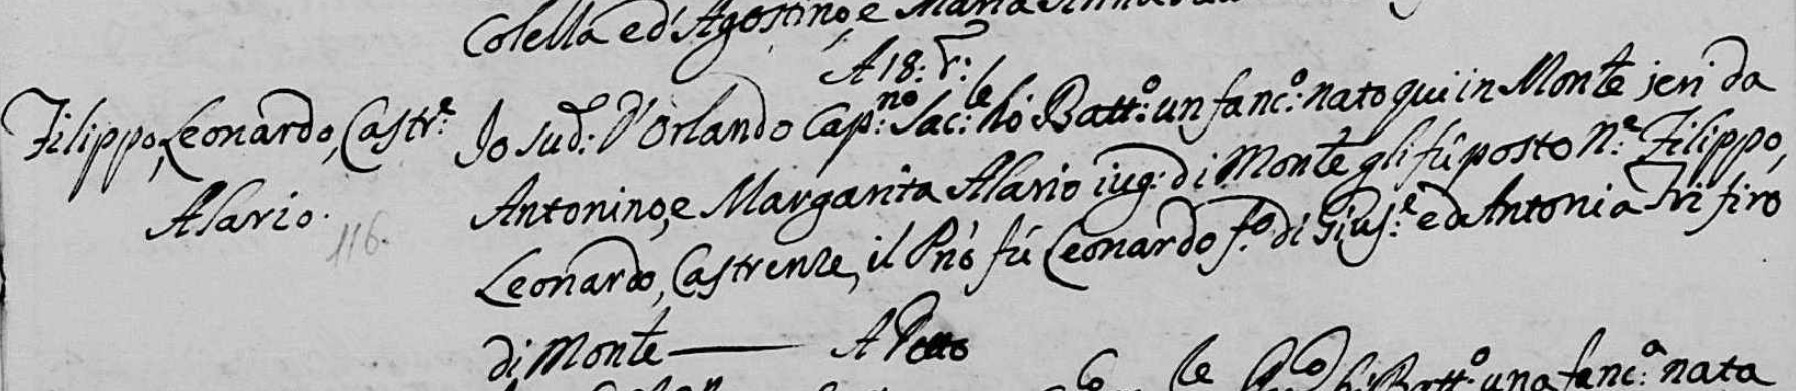 Colella ed Agostino, e Maria
A 18: r:
Filippo, Leonardo, Castr.e
Alario.
116.
Io sud.: D'Orlando Cap:no Sac:le hò Batt:o un fanc:o nato qui in Monte jeri da
Antonino, e Margarita Alario iug: di Monte gli fù posto N:e Filippo,
Leonardo, Castrenze, il Pnō fù Leonardo f.o di Gius:e ed Antonia Trifirò
di Monte — A
Batt:o una fanc:a nata